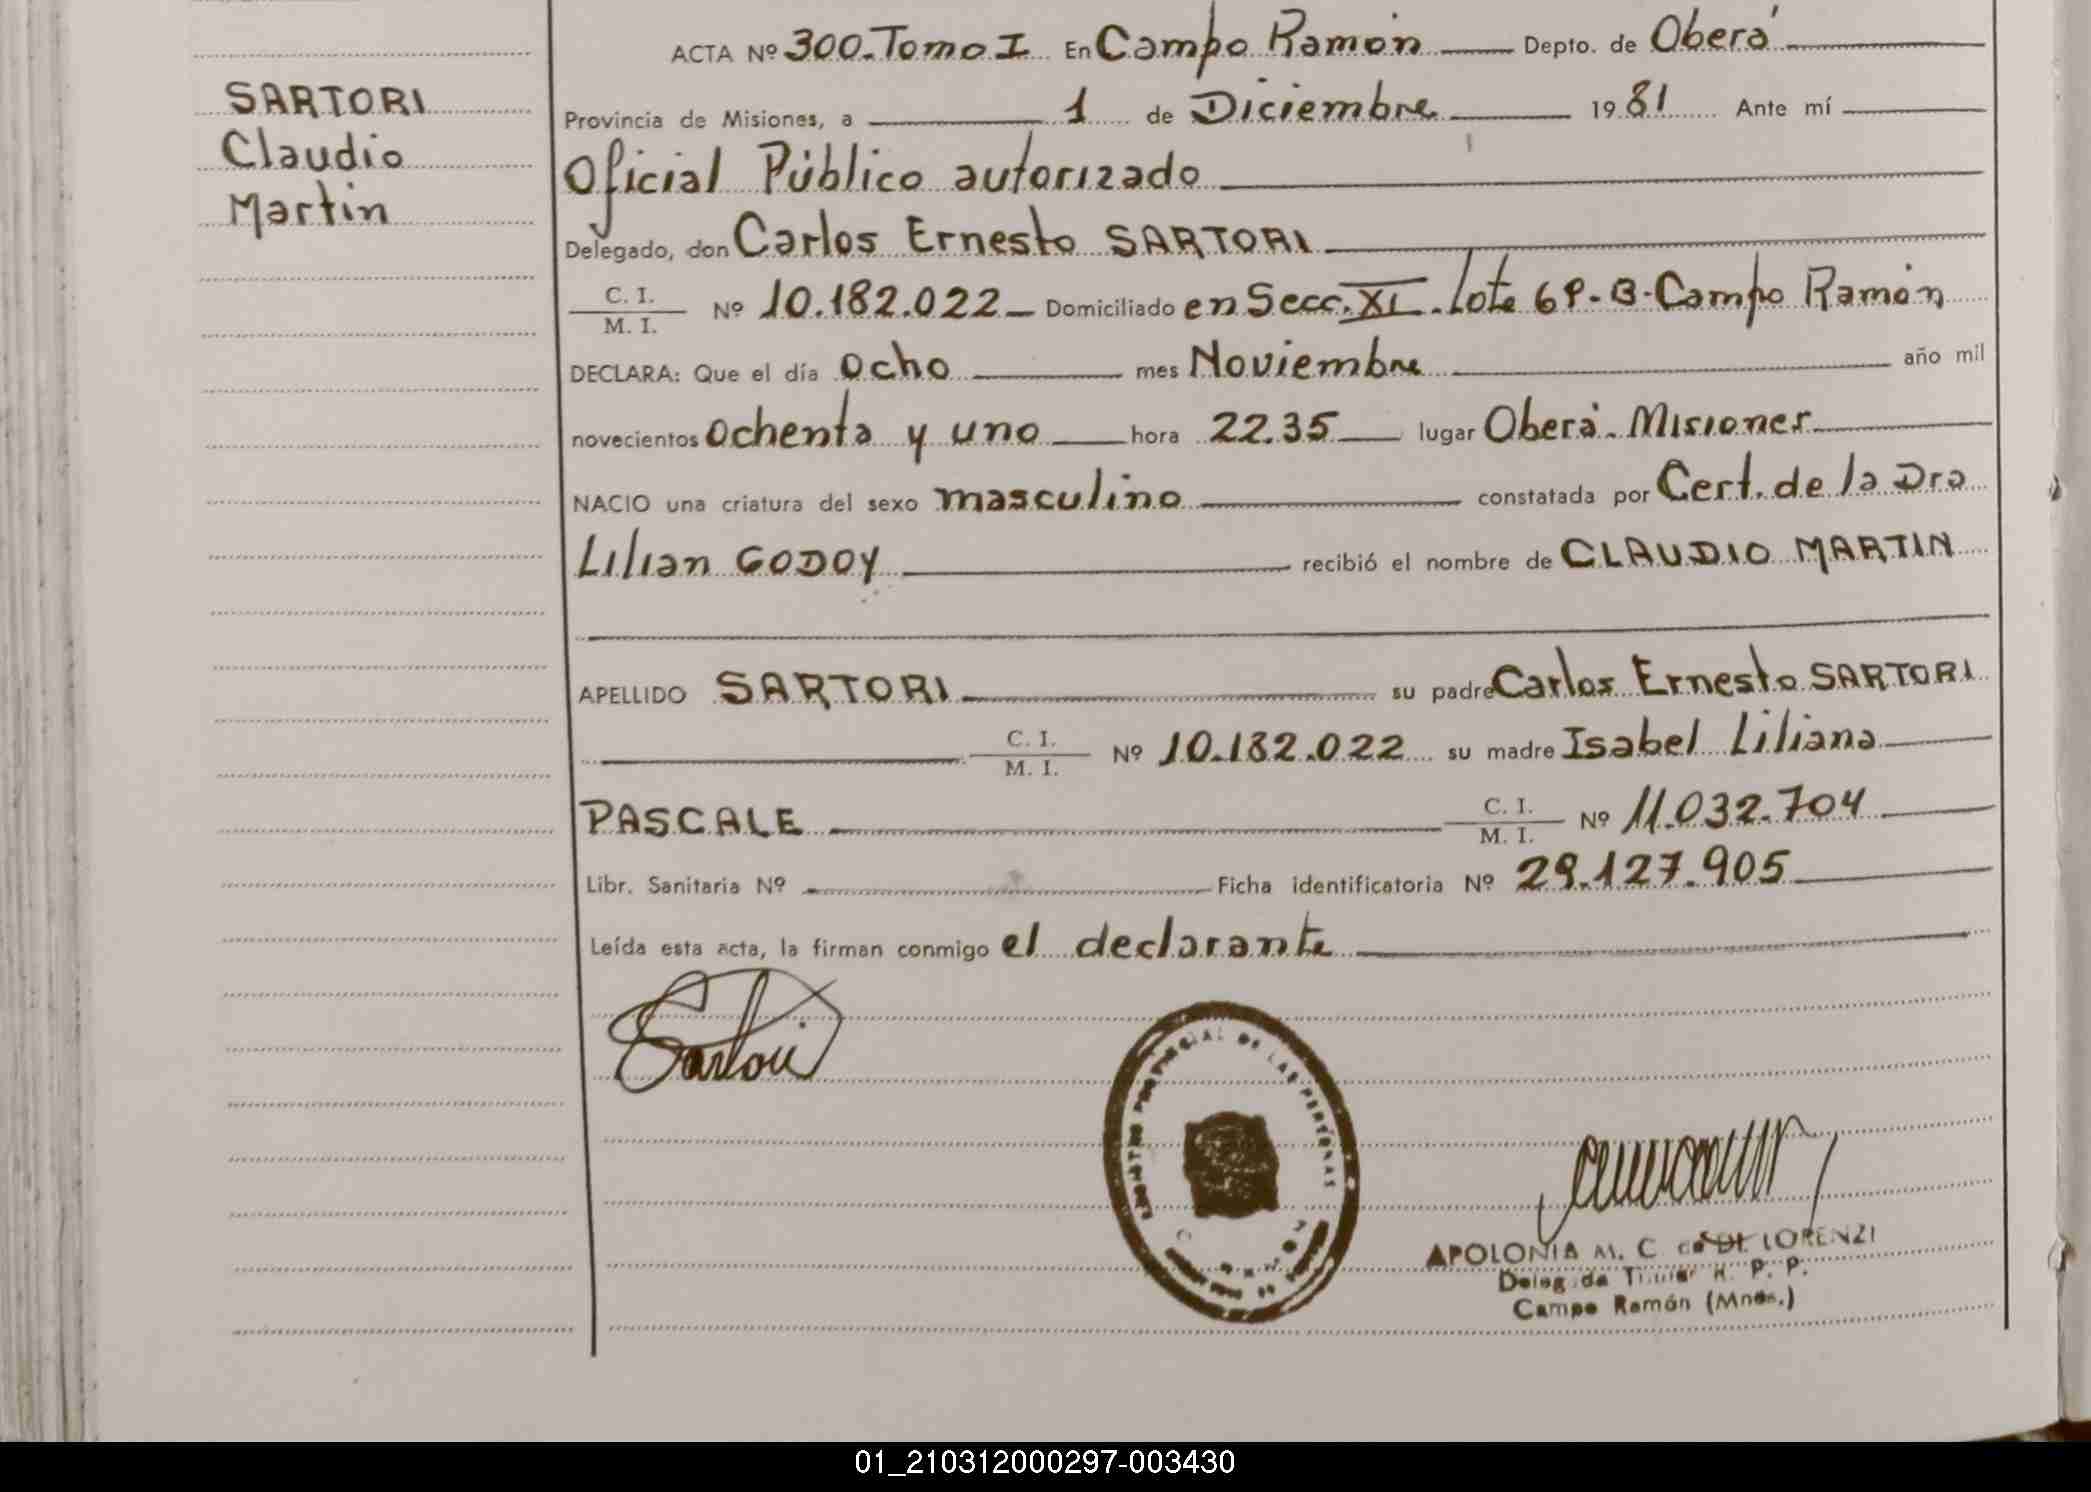 SARTORI
Claudio
Martin
ACTA Nº 300-Tomo I En Campo Ramón Depto. de Oberá
Provincia de Misiones, a 1 de Diciembre 1981 Ante mí
Oficial Público autorizado
Delegado, don Carlos Ernesto SARTORI
C. I.
M. I. Nº 10.182.022 Domiciliado en Secc. XI. Lote 69-B-Campo Ramón
DECLARA: Que el día ocho mes Noviembre año mil
novecientos ochenta y uno hora 22.35 lugar Oberá. Misiones
NACIO una criatura del sexo masculino constatada por Cert. de la Dra
Lilian GODOY recibió el nombre de CLAUDIO MARTIN
APELLIDO SARTORI su padre Carlos Ernesto SARTORI
C. I.
M. I. Nº 10.182.022 su madre Isabel Liliana
PASCALE C. I.
M. I. Nº 11.032.704
Libr. Sanitaria Nº Ficha identificatoria Nº 29.127.905
Leída esta acta, la firman conmigo el declarante
Sartori
PROVINCIAL DE LAS PERSONAS
APOLONIA M. C. de DE LORENZI
Campo Ramón (Mnes.)
01_210312000297-003430